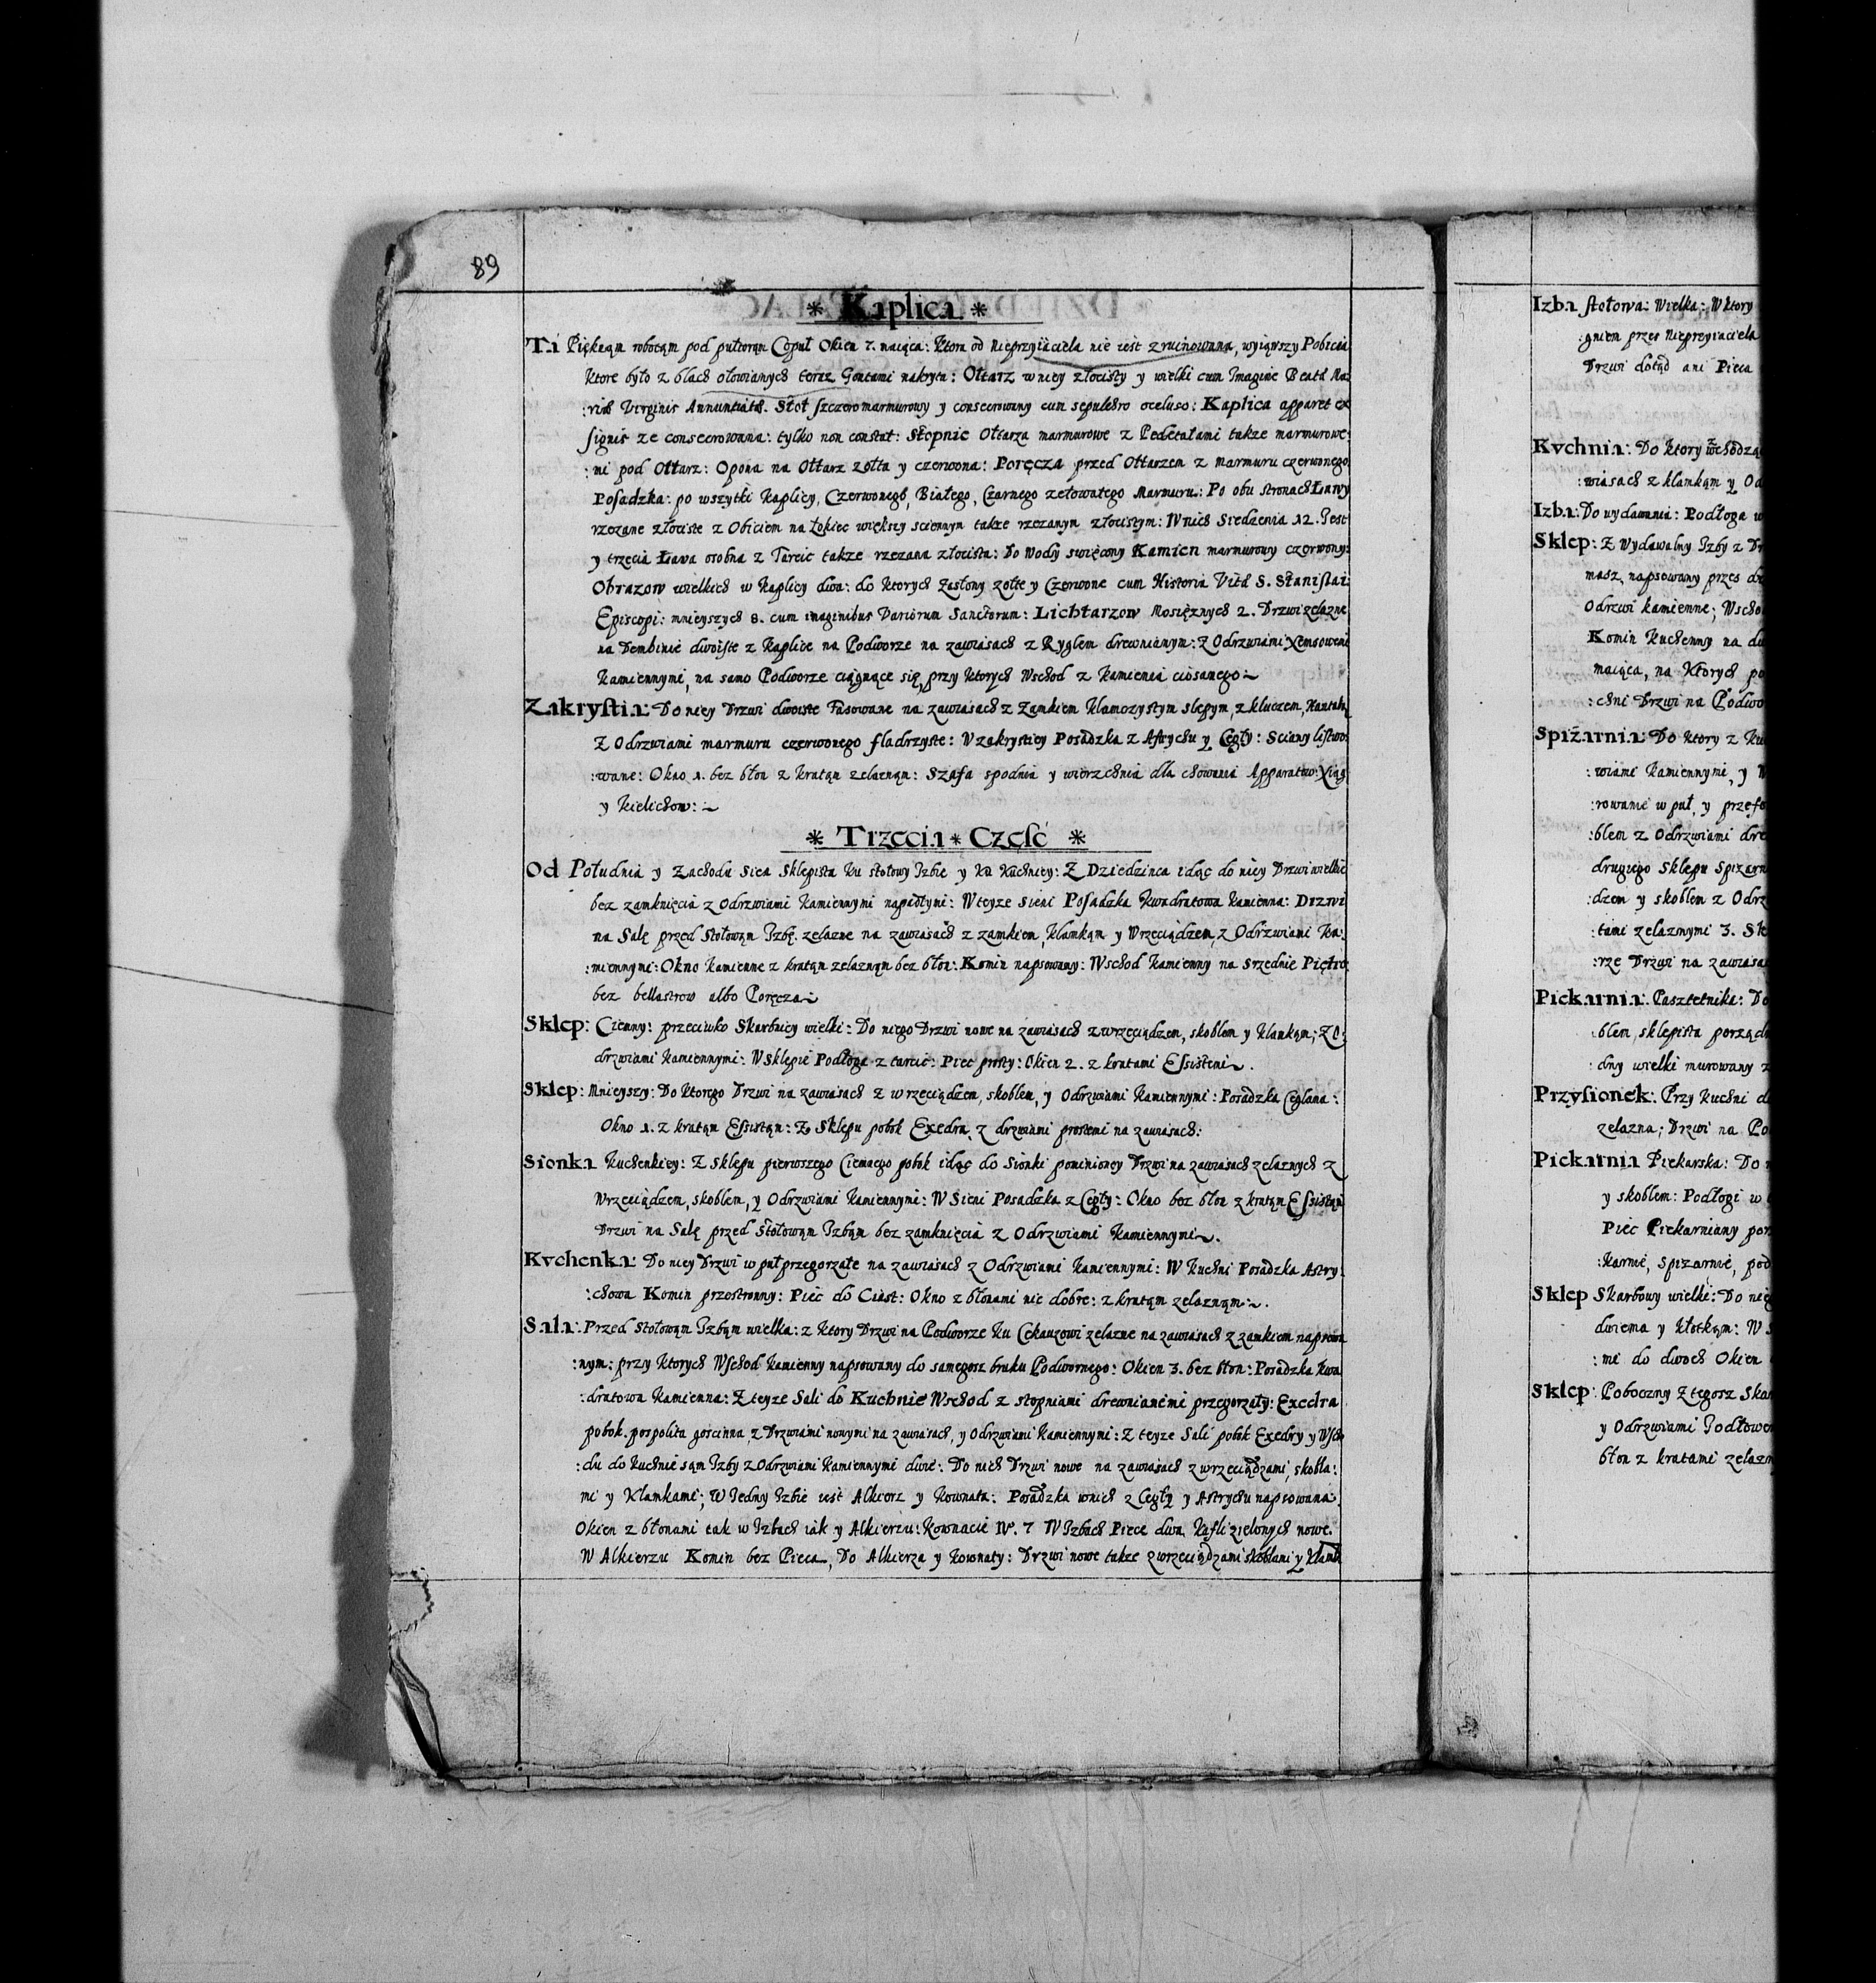 89
* Kaplica *
Ta Piękną robotąm pod pułtorąn Copuł Okien 7. maiąca: Ktora od Nieprzyiaciela nie iest zruinowana, wyiąwszy Pobicia
Ktore było z blach ołowianych teraz Gontami nakryta: Ołtarz w niey złocisty y wielki cum Imagine Beatæ Ma:
:riæ Virginis Annuntiatæ. Stoł szczeromarmurowy y consecrowany cum sepulchro occluso: Kaplica apparet ex
signis ze consecrowana: tylko non constat: Stopnie Ołtarza marmurowe z Pedestałami takze marmurowe:
:mi pod Ołtarz: Opona na Ołtarz zołta y czerwona: Poręcza przed Ołtarzem z marmuru czerwonego
Posadzka: po wszytki Kaplicy, Czerwonego, Białego, Czarnego zełowatego Marmuru: Po obu stronach Ławy
rzezane złociste z Obiciem na Łokiec większy sciennym takze rzezanym złocistym: W nich Siedzenia 12. Jest
y trzecia Ława osobna z Tarcic takze rzezana złocista: Do Wody swięcony Kamien marmurowy czerwony:
Obrazow wielkich w Kaplicy dwa: do Ktorych Zasłony zołte y Czerwone cum Historia Vitæ S. Stanislai
Episcopi: mnieyszych 8. cum imaginibus Variorum Sanctorum: Lichtarzow Mosięznych 2. Drzwi zelazne
na Dembinie dwoiste z Kaplice na Podworze na zawiasach z Ryglem drewnianym: Z Odrzwiami
Kamiennymi, na samo Podworze ciągnące się, przy Ktorych Wschod z Kamienia ciosanego
Zakrystia: Do niey Drzwi dwoiste Fasowane na zawiasach z Zamkiem Klamczystym slepym, z kluczem,
Z Odrzwiami marmuru czerwonego fladrzyste: W zakrystiey Posadzka z Astrychu y Cegły: Sciany listwo:
:wane: Okno 1. bez błon z kratąn zelaznąn: Szafa spodnia y wierzchnia dla chowania Apparatow: Xiąg
y Kielichow:
* Trzecia * Część *
Od Południa y Zachodu Sień Sklepista ku stołowy Izbie y ku Kuchniey: Z Dziedzinca idąc do niey Drzwi wielkie
bez zamknięcia z Odrzwiami Kamiennymi napsutymi: W teyze Sieni Posadzka Kwadratowa Kamienna: Drzwi
na Salę przed Stołowąn Izbę. zelazne na zawiasach z zamkiem, Klamkąm y Wrzeciądzem, z Odrzwiami Ka:
:miennymi: Okno Kamienne z kratąn zelaznąn bez błon: Komin napsowany: Wschod Kamienny na Srzednie Piętro
bez bellastrow albo Poręcza
Sklep: Ciemny: przeciwko Skarbniey wielki: Do niego Drzwi nowe na zawiasach z wrzeciądzem, skoblem y klamkąm; Z O:
drzwiami Kamiennymi: W Sklepie Podłoga z tarcic: Piec prosty: Okien 2. z kratami Essistemi.
Sklep: Mnieyszy: Do Ktorego Drzwi na zawiasach z wrzeciądzem, skoblem, y Odrzwiami Kamiennymi: Posadzka Ceglana:
Okno 1. z kratąn Essistąn: Z Sklepu pobok Exedra, z drzwiami prostemi na zawiasach:
Sionka Kuchenkiey: Z Sklepu pierwszego Ciemnego pobok idąc do Sionki pomienioney Drzwi na zawiasach zelaznych z
Wrzeciądzem, skoblem, y Odrzwiami Kamiennymi: W Sieni Posadzka z Cegły: Okno bez błon z kratąn Essistąn
Drzwi na Salę przed Stołowąn Izbąn bez zamknięcia z Odrzwiami Kamiennymi.
Kvchenka: Do niey Drzwi w puł przegorzałe na zawiasach z Odrzwiami Kamiennymi: W Kuchni Posadzka Astry:
:chowa Komin przestronny: Piec do Ciast: Okno z błonami nie dobre: z kratąm zelaznąm.
Sala: Przed Stołowąm Izbąm wielka: z Ktory Drzwi na Podworze ku Cekauzowi zelazne na zawiasach z zamkiem napsowa
:nym: przy Ktorych Wschod Kamienny napsowany do samegosz bruku Podwornego: Okien 3. bez błon: Posadzka kwa
:dratowa Kamienna: Z teyze Sali do Kuchnie Wschod z stopniami drewnianemi przegorzały: Exedra
pobok. pospolita goscinna, z Drzwiami nowymi na zawiasach, y Odrzwiami Kamiennymi: Z teyze Sali pobok Exedry y Wscho
:du do Kuchnie sąm Izby z Odrzwiami Kamiennymi dwie: Do nich Drzwi nowe na zawiasach z wrzeciądzami, skobla:
mi y Klamkami; W Jedny Izbie iest Alkierz y Kownata: Posadzka w nich z Cegły y Astrychu napsowana:
Okien z błonami tak w Izbach iák y Alkierzu: Kownacie Nº. 7 W Izbach Piece dwa Kafli zielonych nowe.
W Alkierzu Komin bez Pieca, Do Alkierza y Kownaty: Drzwi nowe takze z wrzeciądzami skoblami y klamk
Izba stołowa: Wielka: W ktory
gniem przes Nieprzyiaciela
Drzwi dotąd ani Pieca
Kvchnia: Do Ktory wchodzą
:wiasach z klamkąm y Od
Izba: Do wydawania: Podłoga w
Sklep: Z Wydawalny Izby z Dr
masz, napsowany przes
Odrzwi kamienne; Wscho
Komin Kuchenny na
maiąca, na Ktorych po
:chni Drzwi na Podwo
Spiżarnia: Do Ktory z Ku
:wiami Kamiennymi, y
:rowanie w puł, y
:blem z Odrzwiami dre
drugiego Sklepu Spizarn
:dzem y skoblem z Odrz
:tami zelaznymi 3. Sk
:rze Drzwi na zawiasa
Piekarnia: Pasztetnika: Do
:blem, sklepista porząd
:dny wielki murowany z
Przysionek: Przy kuchni
zelazna; Drzwi na Po
Piekarnia Piekarska: Do
y skoblem: Podłogi w
Piec Piekarniany por
:karnie, Spizarnie, pod
Sklep Skarbowy wielki: Do nieg
dwiema y kłotkąm: W
:mi do dwoch Okien
Sklep: Poboczny Z tegosz Skar
y Odrzwiami
błon z kratami zelazn